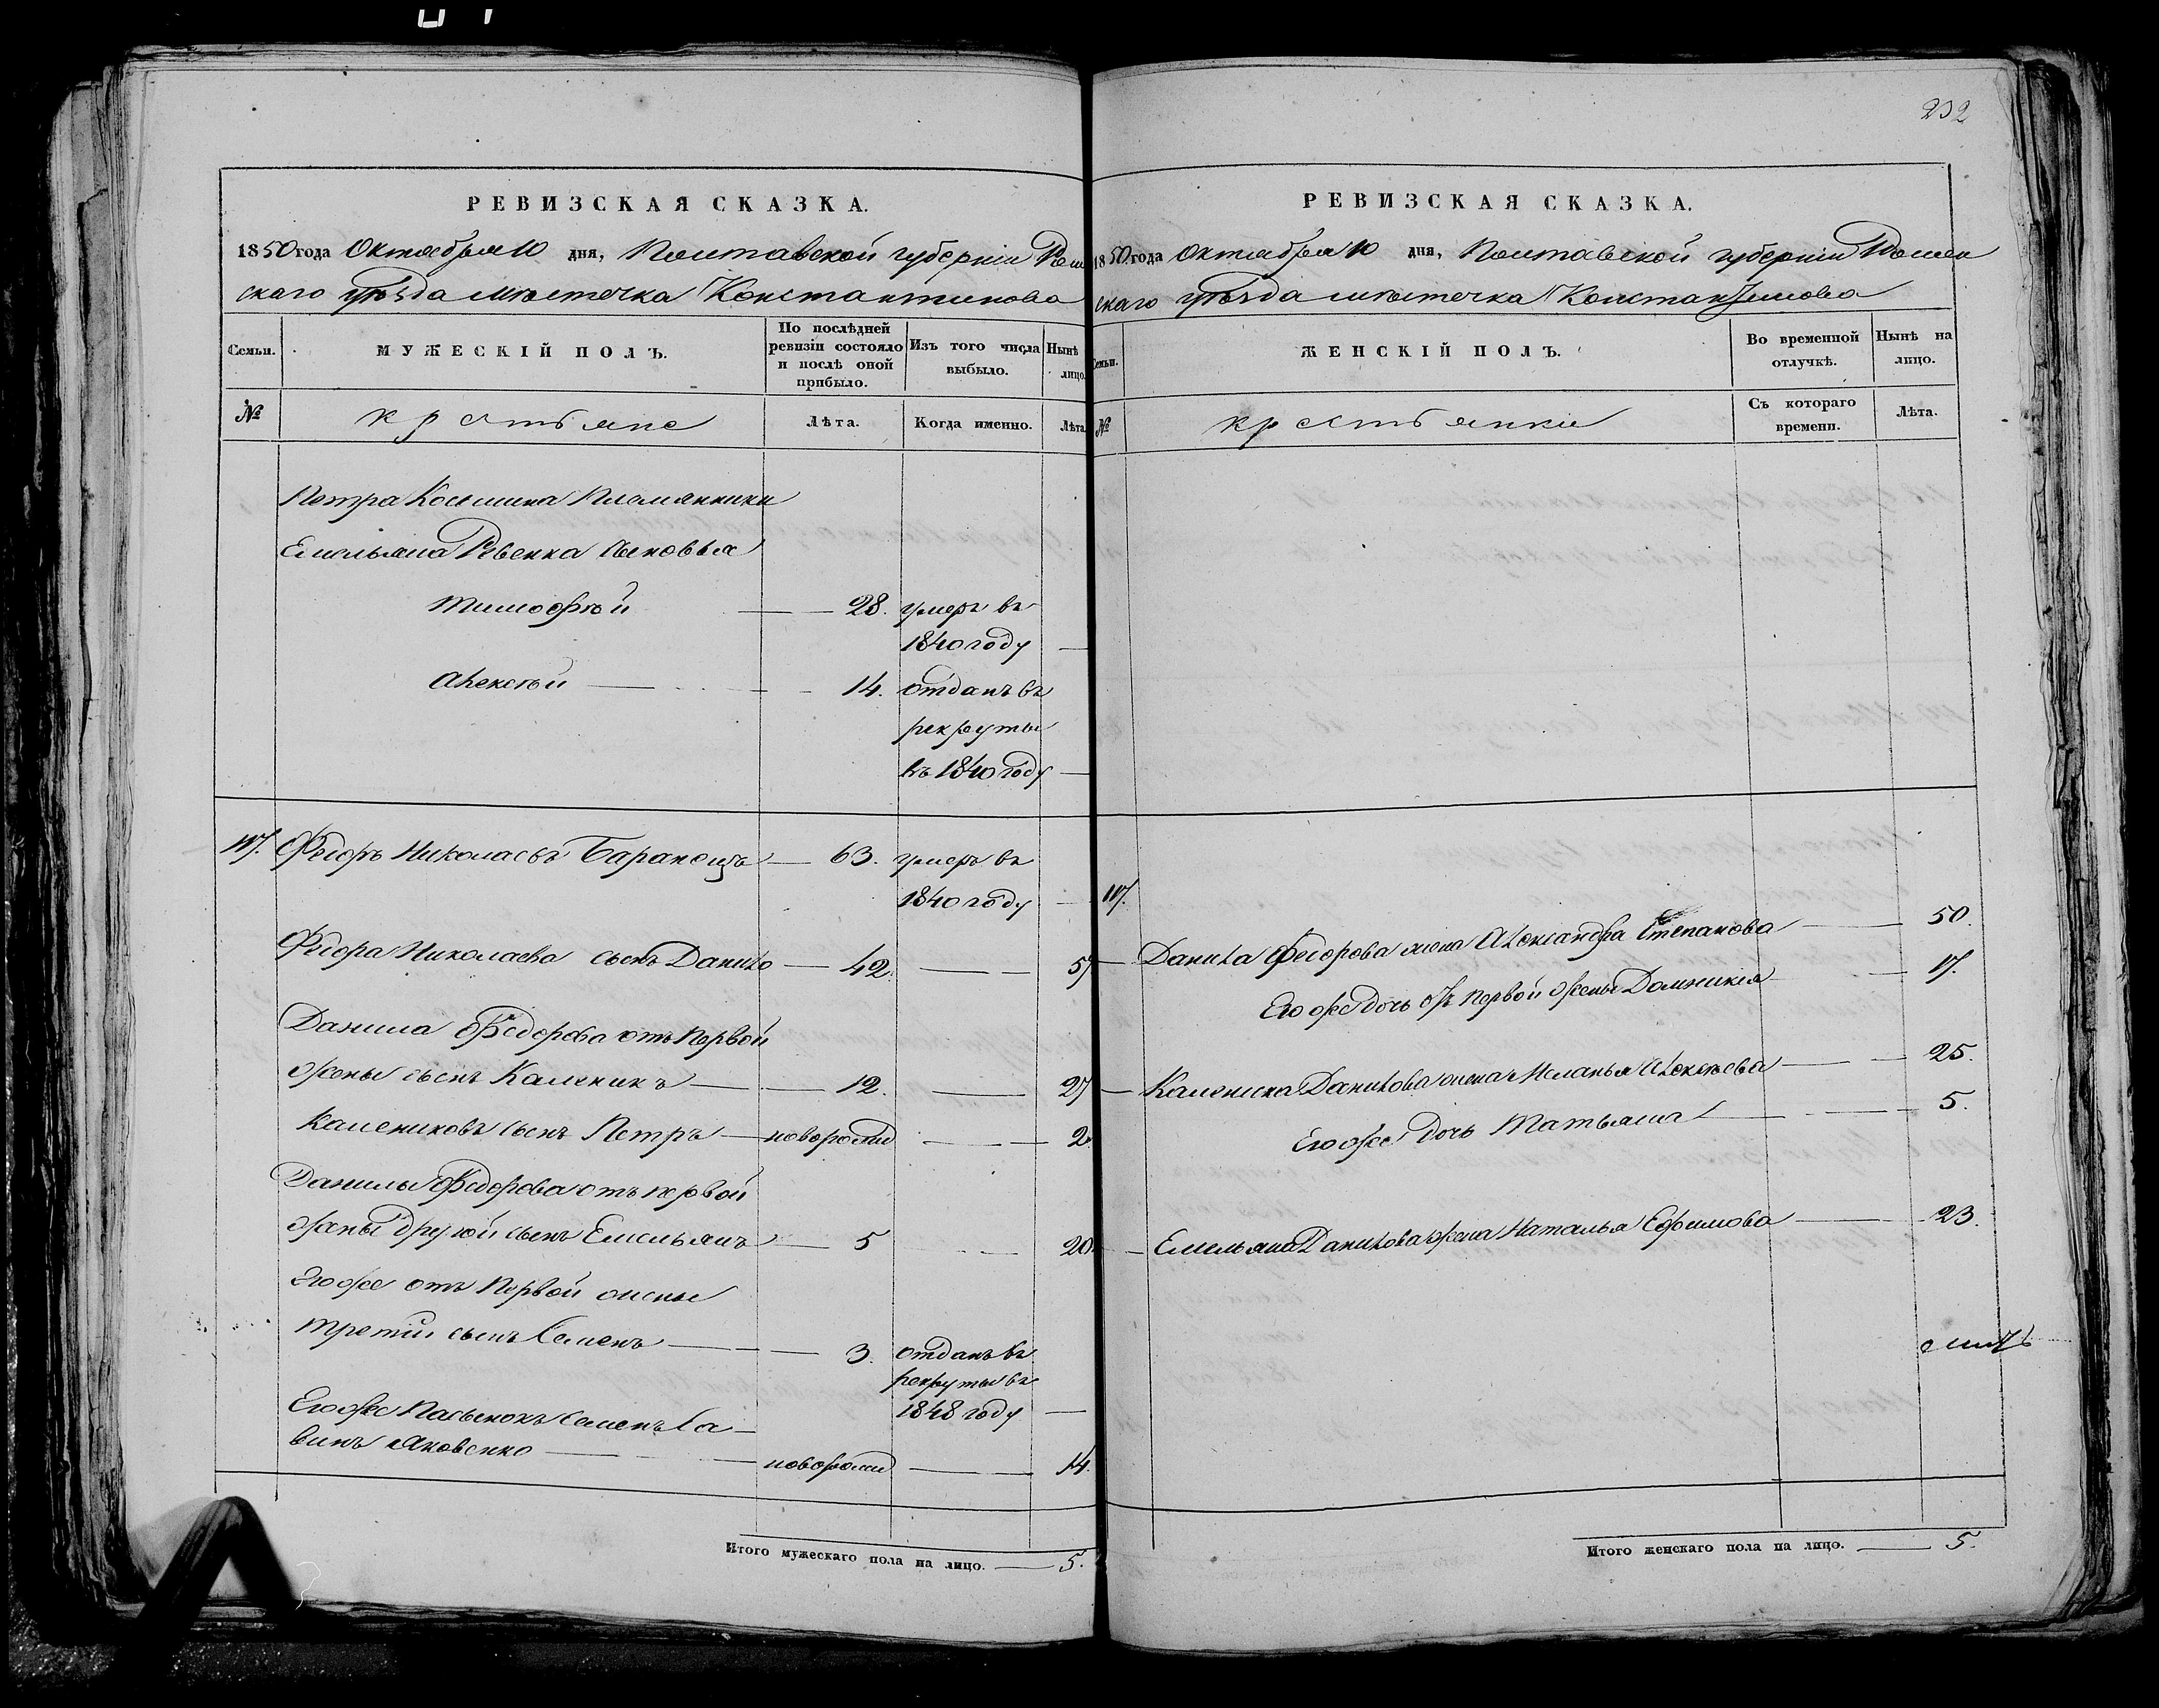 232
РЕВИЗСКАЯ СКАЗКА.
1850 года Октября 10 дня, Полтавской губерніи Ромен
скаго уѣзда мѣстечка Константинова
Семьи.
МУЖЕСКІЙ ПОЛЪ.
По послѣдней ревизіи состояло и послѣ оной прибыло.
Изъ того числа выбыло.
Нынѣ лицо.
№
крестьяне
Лѣта.
Когда именно.
Лѣта.
Петра Косьмина племянники
Емельяна Ревенка сыновья
Тимофѣй — 28. умеръ въ
1840 году —
Алексѣй — 14. отданъ въ
рекруты
въ 1840 году —
117. Федоръ Николаевъ Баранецъ — 63. умеръ въ
1840 году —
Федора Николаева сынъ Данило — 42. — 57
Данила Федорова отъ первой
жены сынъ Каленикъ — 12. — 27
Калениковъ сынъ Петръ — новорожд — 2.
Данилы Федорова отъ первой
жены другой сынъ Емельянъ — 5 — 20.
Его же отъ первой жены
третій сынъ Семенъ — 3. отданъ въ
рекруты въ
1848 году —
Его же пасынокъ Семенъ Са-
винъ Яковенко — новорожд — 14.
Итого мужескаго пола на лицо. — 5.
РЕВИЗСКАЯ СКАЗКА.
1850 года Октября 10 дня, Полтавской губерніи Ромен
скаго уѣзда мѣстечка Константинова
Семьи.
ЖЕНСКІЙ ПОЛЪ.
Во временной отлучкѣ.
Нынѣ на лицо.
№
крестьянки
Съ котораго времени.
Лѣта.
117.
Данила Федорова жена Александра Степанова — 50.
Его же дочь отъ первой жены Домникія — 17.
Каленика Данилова жена Меланья Алексѣева — 25.
Его же дочь Татьяна — 5.
Емельяна Данилова жена Наталья Ефимова — 23.
Итого женскаго пола на лицо. — 5.